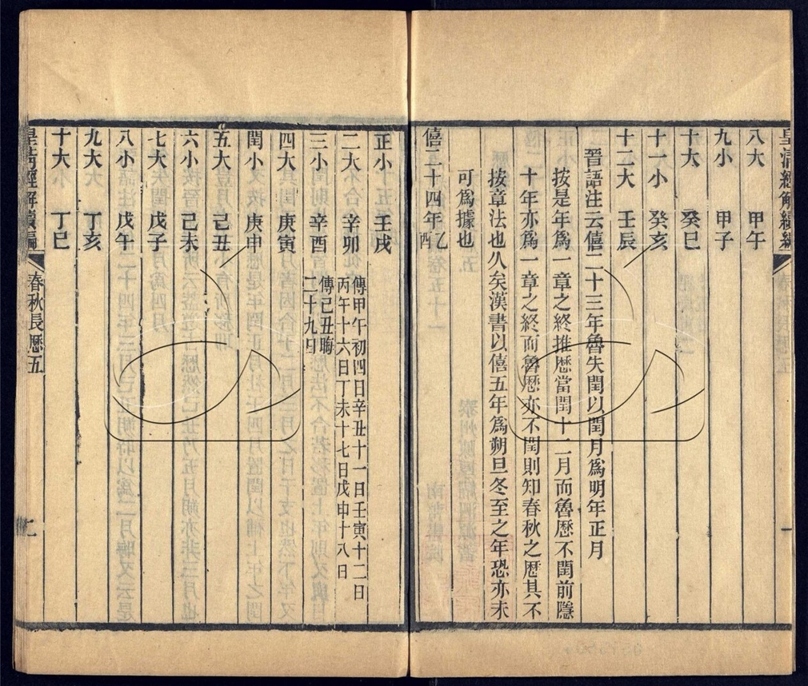 皇淸經解續編
八大 甲午
九小 甲子
十大 癸巳
十一小 癸亥
十二大 壬辰
晉語注云僖二十三年魯失閏以閏月爲明年正月
按是年爲一章之終推厯當閏十二月而魯厯不閏前隱
十年亦爲一章之終而魯厯亦不閏則知春秋之厯其不
按章法也久矣漢書以僖五年爲朔旦冬至之年恐亦未
可爲據也
僖二十四年乙酉
正小 壬戌
二大 辛卯 傳甲午初四日辛丑十一日壬寅十二日
丙午十六日丁未十七日戊申十八日
三小 辛酉 傳己丑晦
二十九日
四大 庚寅
閏小 庚申
五大 己丑
六小 己未
七大 戊子
八小 戊午
九大 丁亥
十大 丁巳
皇淸經解續編 春秋長厯五